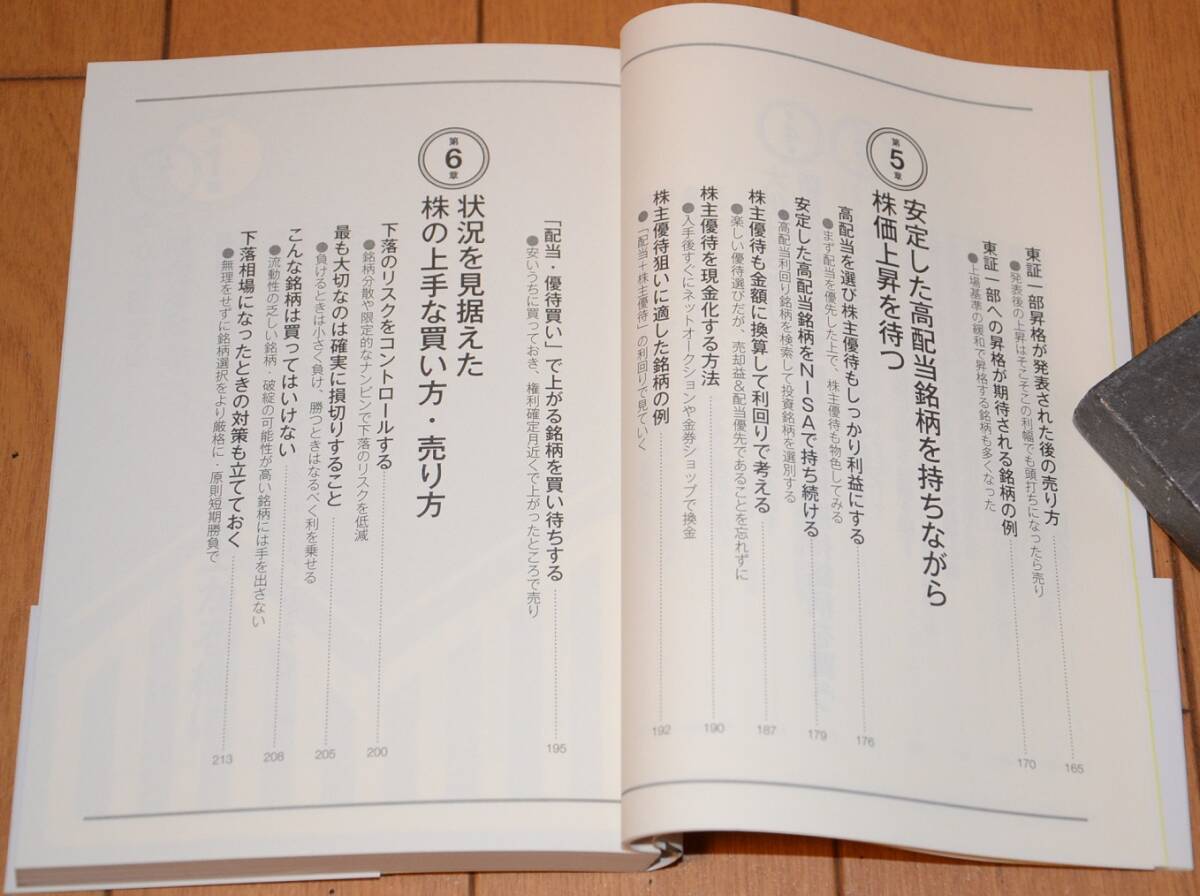 東証一部昇格が発表された後の売り方
165
●発表後の上昇はそこそこの利幅でも頭打ちになったら売り
東証一部への昇格が期待される銘柄の例
170
●上場基準の緩和で昇格する銘柄も多くなった
第5章
安定した高配当銘柄を持ちながら
株価上昇を待つ
高配当を選び株主優待もしっかり利益にする
176
●まず配当を優先した上で、株主優待も物色してみる
安定した高配当銘柄をNISAで持ち続ける
179
●高配当利回り銘柄を検索して投資銘柄を選別する
株主優待も金額に換算して利回りで考える
187
●楽しい優待選びだが、売却益&配当優先であることを忘れずに
株主優待を現金化する方法
190
●入手後すぐにネットオークションや金券ショップで換金
株主優待狙いに適した銘柄の例
192
●「配当+株主優待」の利回りで見ていく
「配当・優待買い」で上がる銘柄を買い待ちする
195
●安いうちに買っておき、権利確定月近くで上がったところで売り
第6章
状況を見据えた
株の上手な買い方・売り方
下落のリスクをコントロールする
200
●銘柄分散や限定的なナンピンで下落のリスクを低減
最も大切なのは確実に損切りすること
205
●負けるときは小さく負け、勝つときはなるべく利を乗せる
こんな銘柄は買ってはいけない
208
●流動性の乏しい銘柄・破綻の可能性が高い銘柄には手を出さない
下落相場になったときの対策も立てておく
213
●無理をせずに銘柄選択をより厳格に・原則短期勝負で